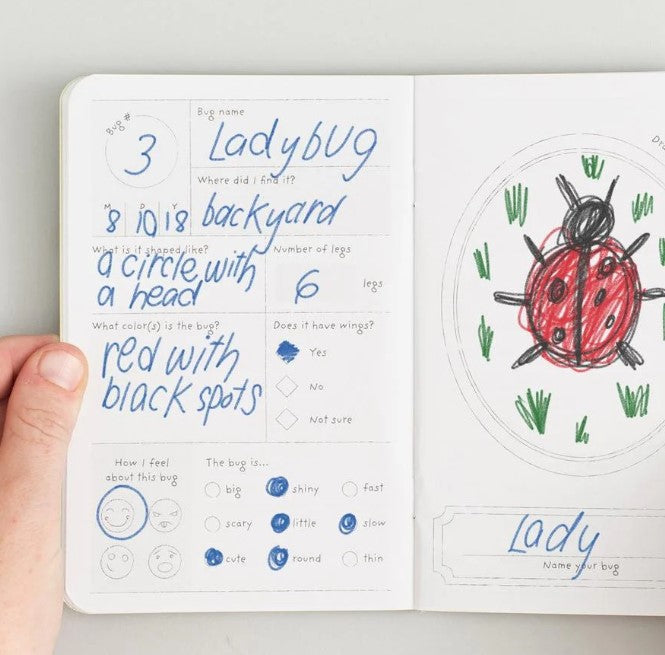 Bug #
3
Bug name
Ladybug
Where did I find it?
backyard
M D Y
8 10 18
What is it shaped like?
a circle with
a head
Number of legs
6 legs
What color(s) is the bug?
red with
black spots
Does it have wings?
Yes
No
Not sure
How I feel
about this bug
The bug is...
big shiny fast
scary little slow
cute round thin
Lady
Name your bug